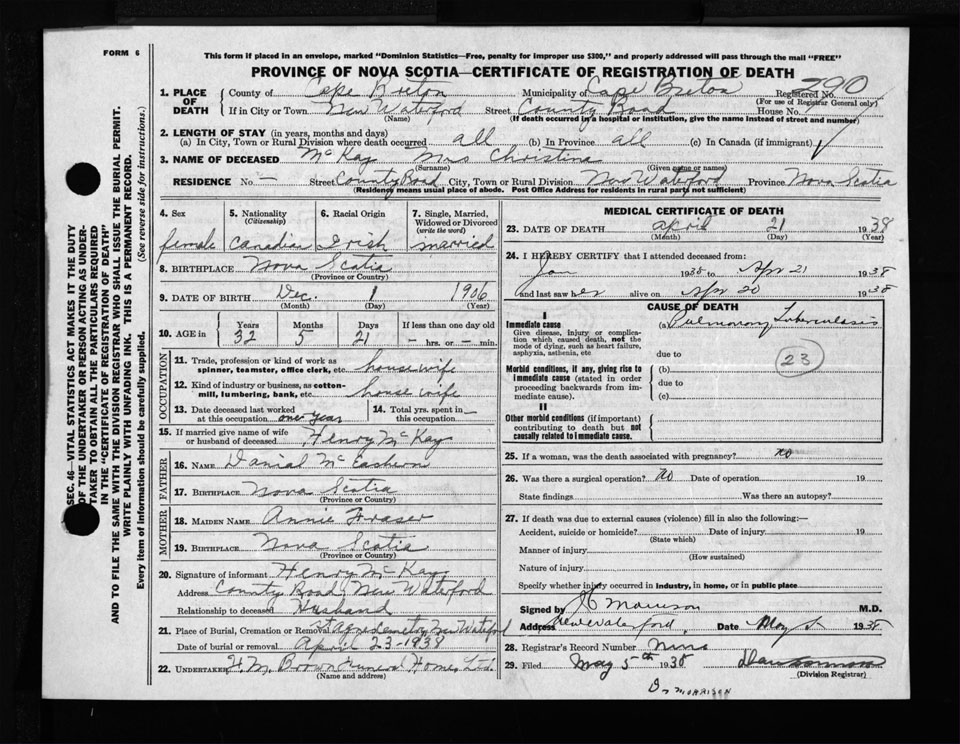 FORM 6
This form if placed in an envelope, marked "Dominion Statistics—Free, penalty for improper use $300," and properly addressed will pass through the mail "FREE"
PROVINCE OF NOVA SCOTIA—CERTIFICATE OF REGISTRATION OF DEATH
SEC. 46—VITAL STATISTICS ACT MAKES IT THE DUTY
OF THE UNDERTAKER OR PERSON ACTING AS UNDER-
TAKER TO OBTAIN ALL THE PARTICULARS REQUIRED
IN THE "CERTIFICATE OF REGISTRATION OF DEATH"
AND TO FILE THE SAME WITH THE DIVISION REGISTRAR WHO SHALL ISSUE THE BURIAL PERMIT.
WRITE PLAINLY WITH UNFADING INK. THIS IS A PERMANENT RECORD.
Every item of information should be carefully supplied. (See reverse side for instructions.)
1. PLACE OF DEATH
County of Cape Breton Municipality of Cape Breton Registered No. 290
(For use of Registrar General only)
If in City or Town New Waterford Street County Road House No.
(Name) (If death occurred in a hospital or institution, give the name instead of street and number)
2. LENGTH OF STAY (in years, months and days)
(a) In City, Town or Rural Division where death occurred all (b) In Province all (c) In Canada (if immigrant) ✓
3. NAME OF DECEASED McKay Mrs Christina
(Surname) (Given name or names)
RESIDENCE No. — Street County Road City, Town or Rural Division New Waterford Province Nova Scotia
(Residency means usual place of abode. Post Office Address for residents in rural parts not sufficient)
4. Sex female
5. Nationality (Citizenship) Canadian
6. Racial Origin Irish
7. Single, Married, Widowed or Divorced (write the word) married
8. BIRTHPLACE Nova Scotia
(Province or Country)
9. DATE OF BIRTH Dec. 1 1906
(Month) (Day) (Year)
10. AGE in Years 32 Months 5 Days 21 If less than one day old – hrs. or – min.
OCCUPATION
11. Trade, profession or kind of work as spinner, teamster, office clerk, etc. house wife
12. Kind of industry or business, as cotton-mill, lumbering, bank, etc. house wife
13. Date deceased last worked at this occupation one year
14. Total yrs. spent in this occupation –
15. If married give name of wife or husband of deceased Henry McKay
FATHER
16. NAME Danial McEachern
17. BIRTHPLACE Nova Scotia
(Province or Country)
MOTHER
18. MAIDEN NAME Annie Fraser
19. BIRTHPLACE Nova Scotia
(Province or Country)
20. Signature of informant Henry McKay
Address County Road, New Waterford
Relationship to deceased Husband
21. Place of Burial, Cremation or Removal New Waterford
Date of burial or removal April 23-1938
22. UNDERTAKER H. M. Brown Funeral Home, Ltd.
(Name and address)
MEDICAL CERTIFICATE OF DEATH
23. DATE OF DEATH april 21 1938
(Month) (Day) (Year)
24. I HEREBY CERTIFY that I attended deceased from:
Jan 1938 to Apr 21 1938
and last saw her alive on Apr 20 1938
CAUSE OF DEATH
I
Immediate cause (a) Pulmonary Tuberculosis
Give disease, injury or complication which caused death, not the mode of dying, such as heart failure, asphyxia, asthenia, etc
due to
23
Morbid conditions, if any, giving rise to immediate cause (stated in order proceeding backwards from immediate cause).
(b)
due to
(c)
II
Other morbid conditions (if important) contributing to death but not causally related to immediate cause.
25. If a woman, was the death associated with pregnancy? no
26. Was there a surgical operation? no Date of operation 19
State findings Was there an autopsy?
27. If death was due to external causes (violence) fill in also the following:—
Accident, suicide or homicide? Date of injury 19
(State which)
Manner of injury
(How sustained)
Nature of injury
Specify whether injury occurred in industry, in home, or in public place
Signed by Morrison M.D.
Address New Waterford, Date May 1938
28. Registrar's Record Number Nine
29. Filed May 5th 1938
(Division Registrar)
Dr MORRISON